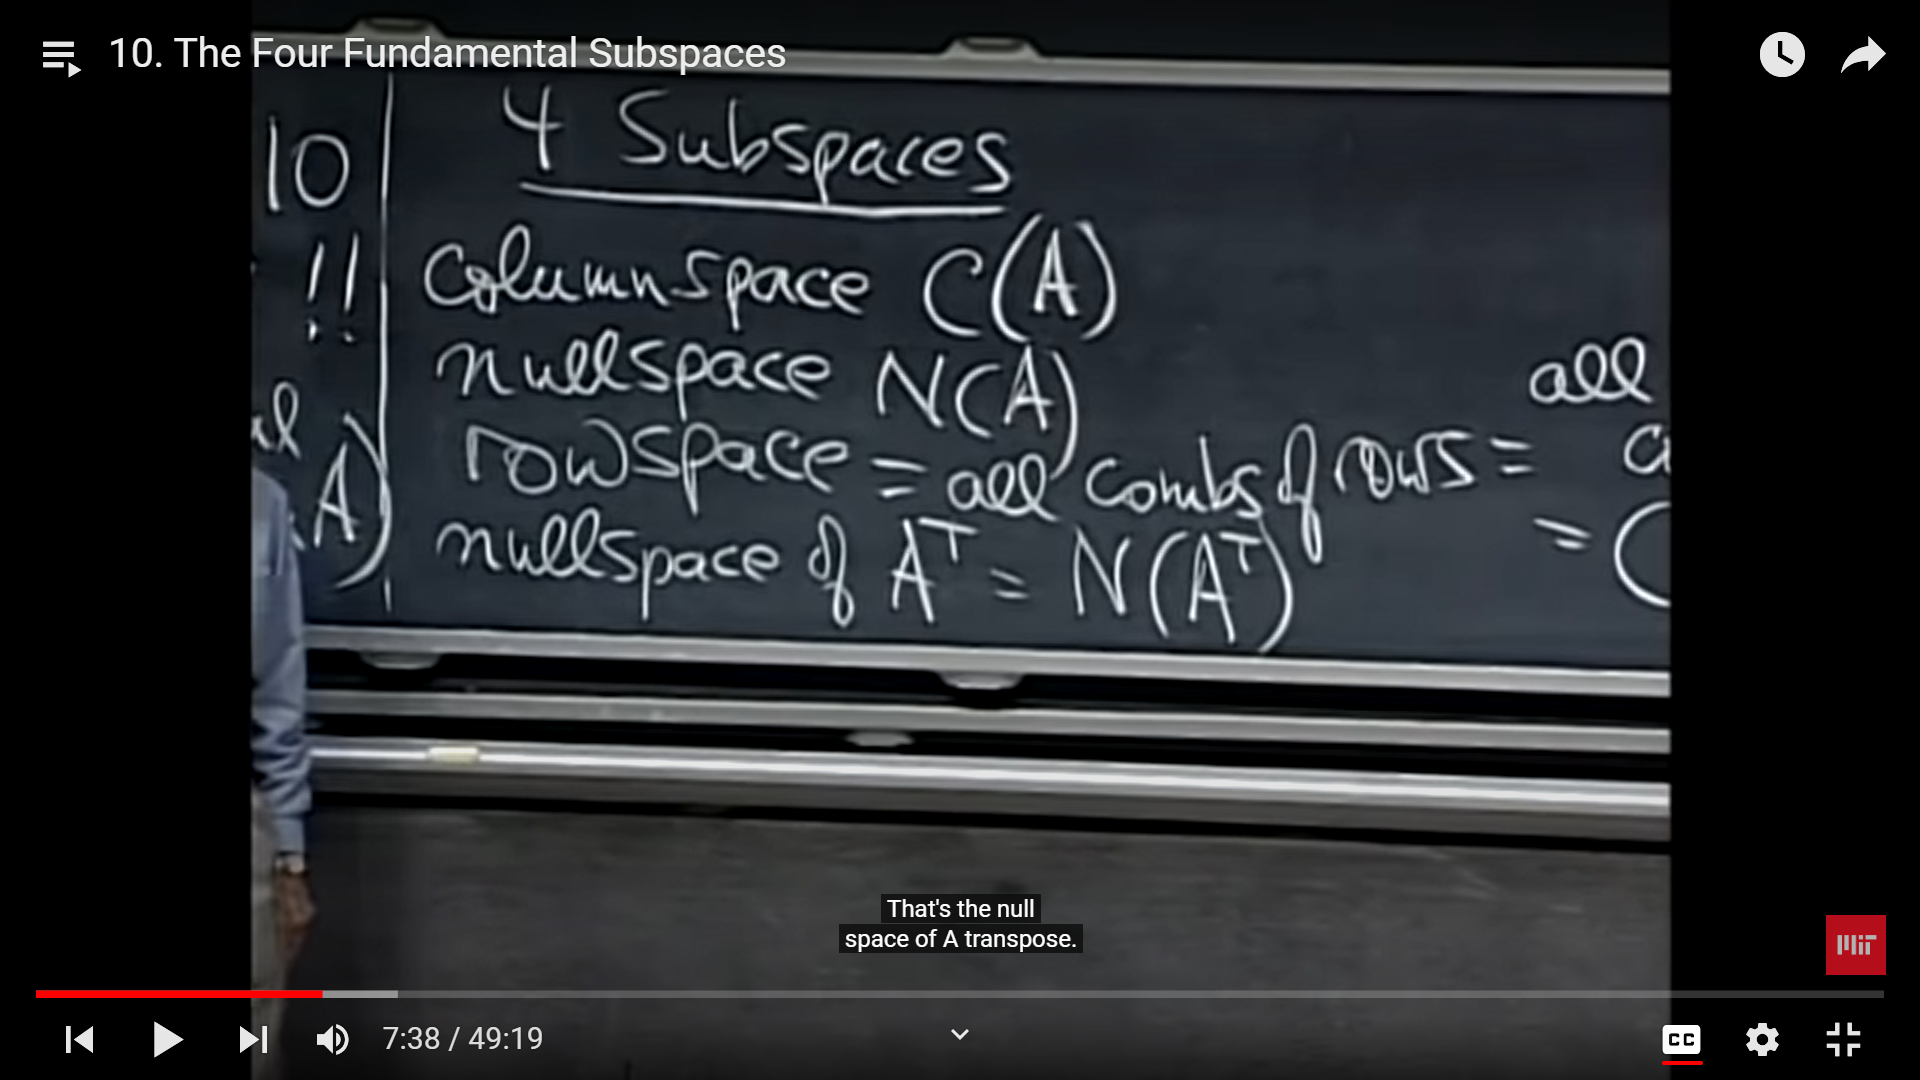 10. The Four Fundamental Subspaces
10
!!
A)
4 Subspaces
Column space C(A)
nullspace N(A)
rowspace = all combs of rows = all
= C
nullspace of Aᵀ = N(Aᵀ)
That's the null
space of A transpose.
MIT
7:38 / 49:19
CC